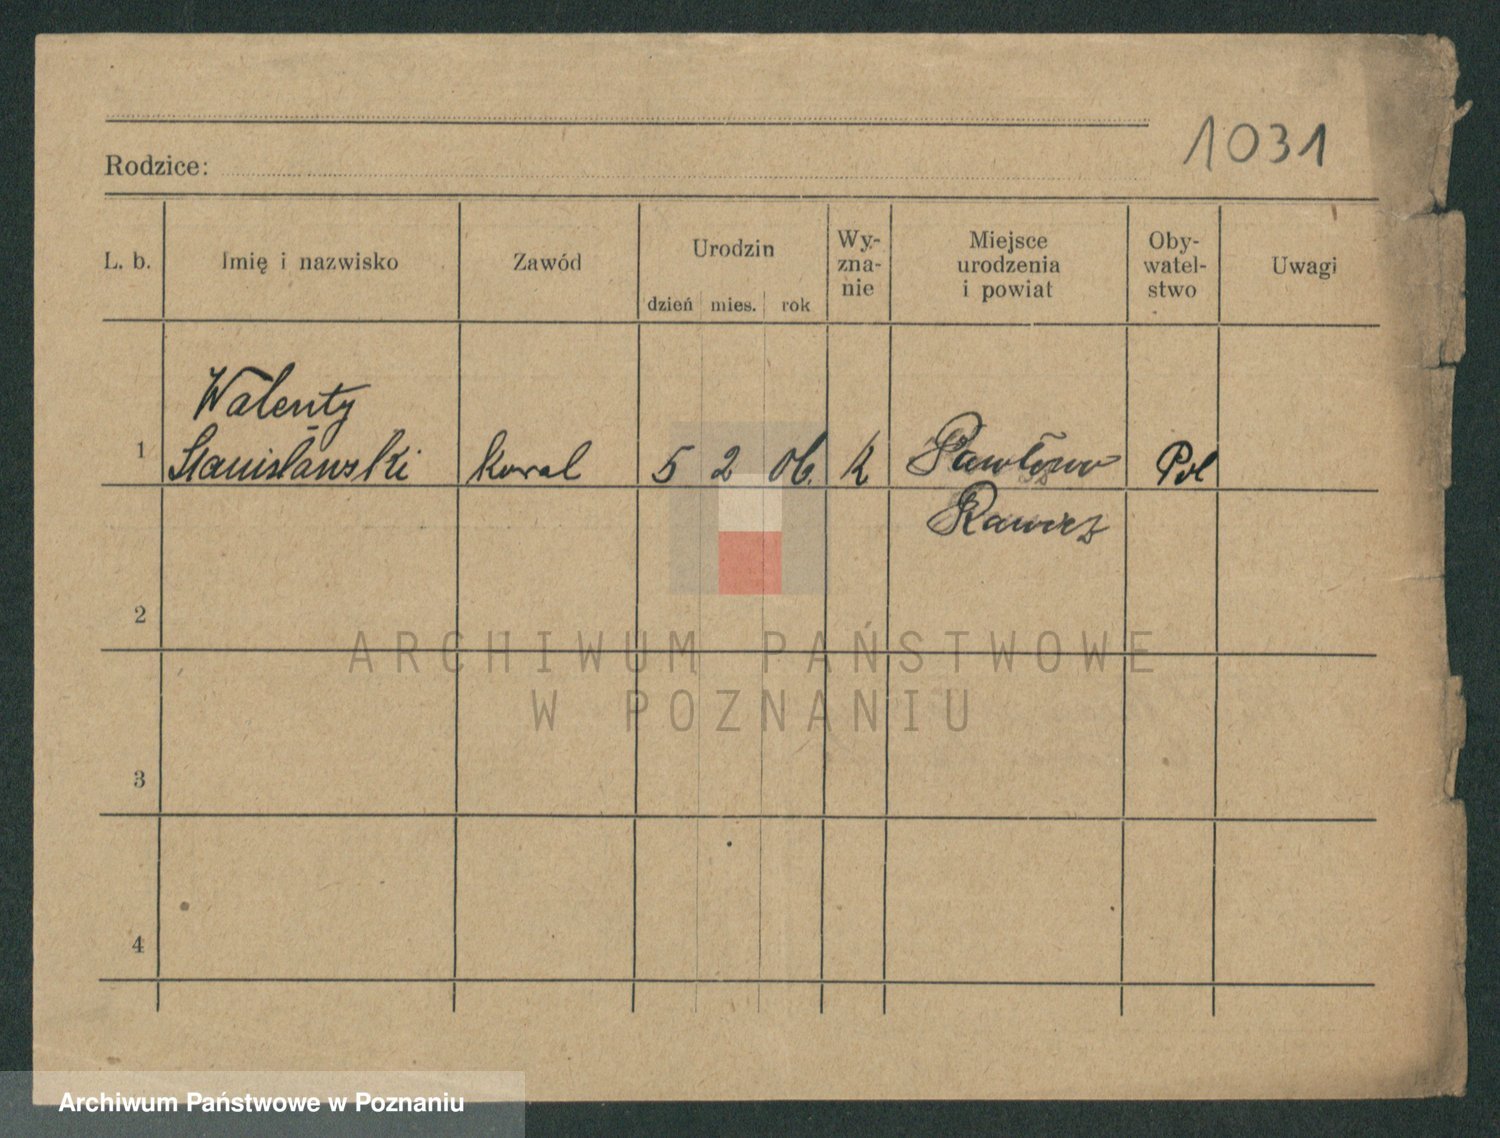 1031
Rodzice:
L. b.
Imię i nazwisko
Zawód
Urodzin
dzień mies. rok
Wy-
zna-
nie
Miejsce
urodzenia
i powiat
Oby-
watel-
stwo
Uwagi
Walenty
1 Stanisławski kowal 5 2 06. k Pawłowo Pol
Rawicz
2
3
4
ARCHIWUM PAŃSTWOWE
W POZNANIU
Archiwum Państwowe w Poznaniu